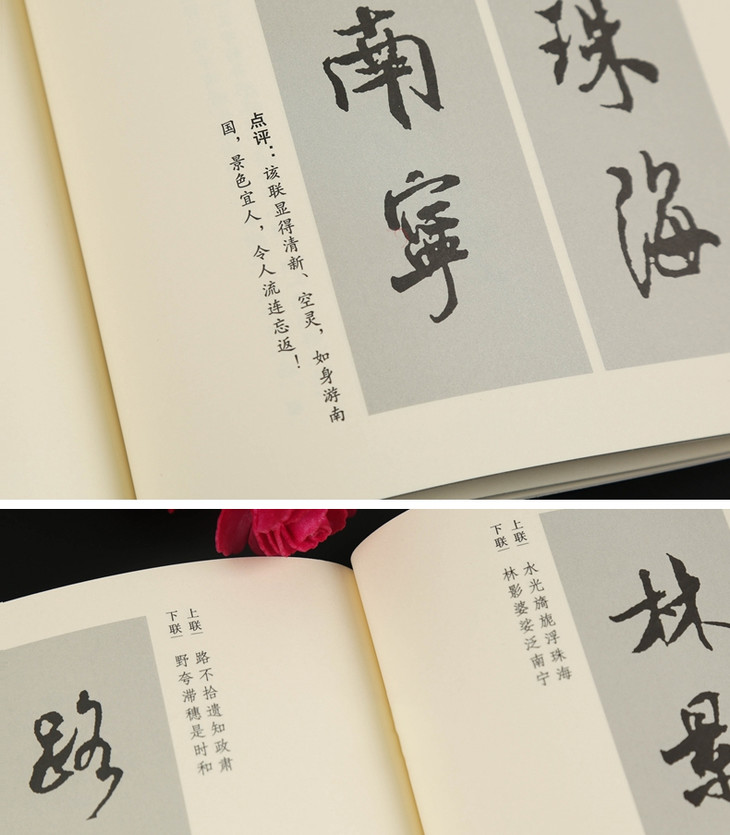 珠海
南寧
点评：该联显得清新、空灵，如身游南
国，景色宜人，令人流连忘返！
林景
上联｜水光旖旎浮珠海
下联｜林影婆娑泛南宁
上联｜路不拾遗知政肃
下联｜野夸滞穗是时和
路